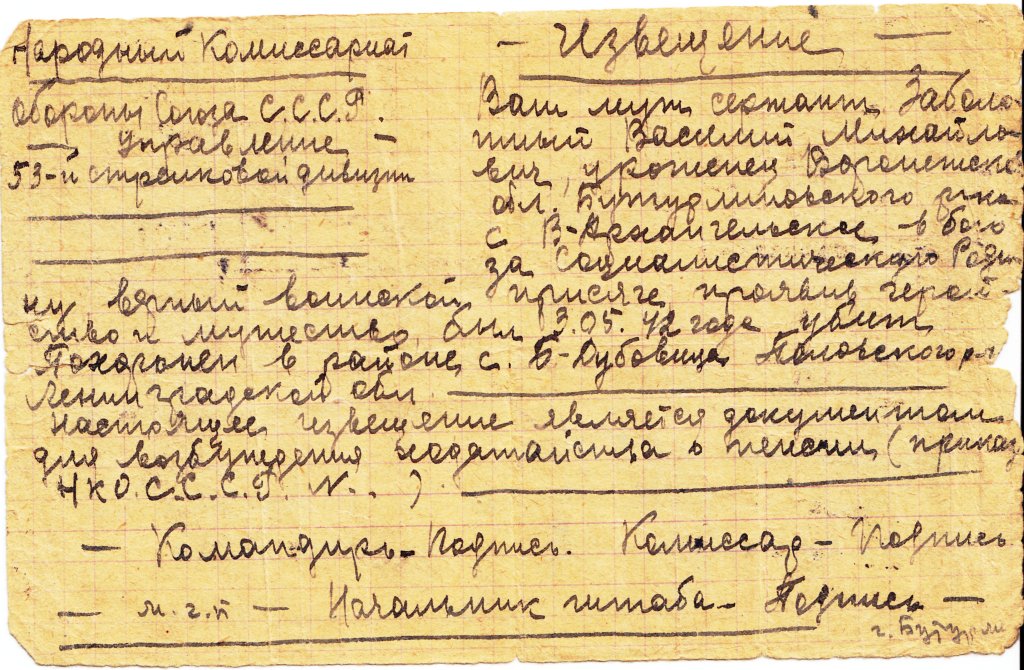 Народный Комиссариат
Обороны Союза С.С.С.Р.
— Управление —
53-й стрелковой дивизии
— Извещение —
Ваш муж сержант Заболо-
тный Василий Михайло-
вич, уроженец Воронежско
обл. Бутурлиновского р-на
с В-Архангельское в бою
за Социалистическую Роди-
ну верный воинской присяге проявив герой-
ство и мужество, был 3.05.42 года убит
Похоронен в районе с. Б-Дубовица Половского р-
Ленинградской обл.
Настоящее извещение является документом
для возбуждения ходатайства о пенсии (приказ
НКО.С.С.С.Р. N.. ).
— Командиръ – Подпись. Комиссар – Подпись
— м.г.п — Начальник штаба – Подпись —
г. Бутурли